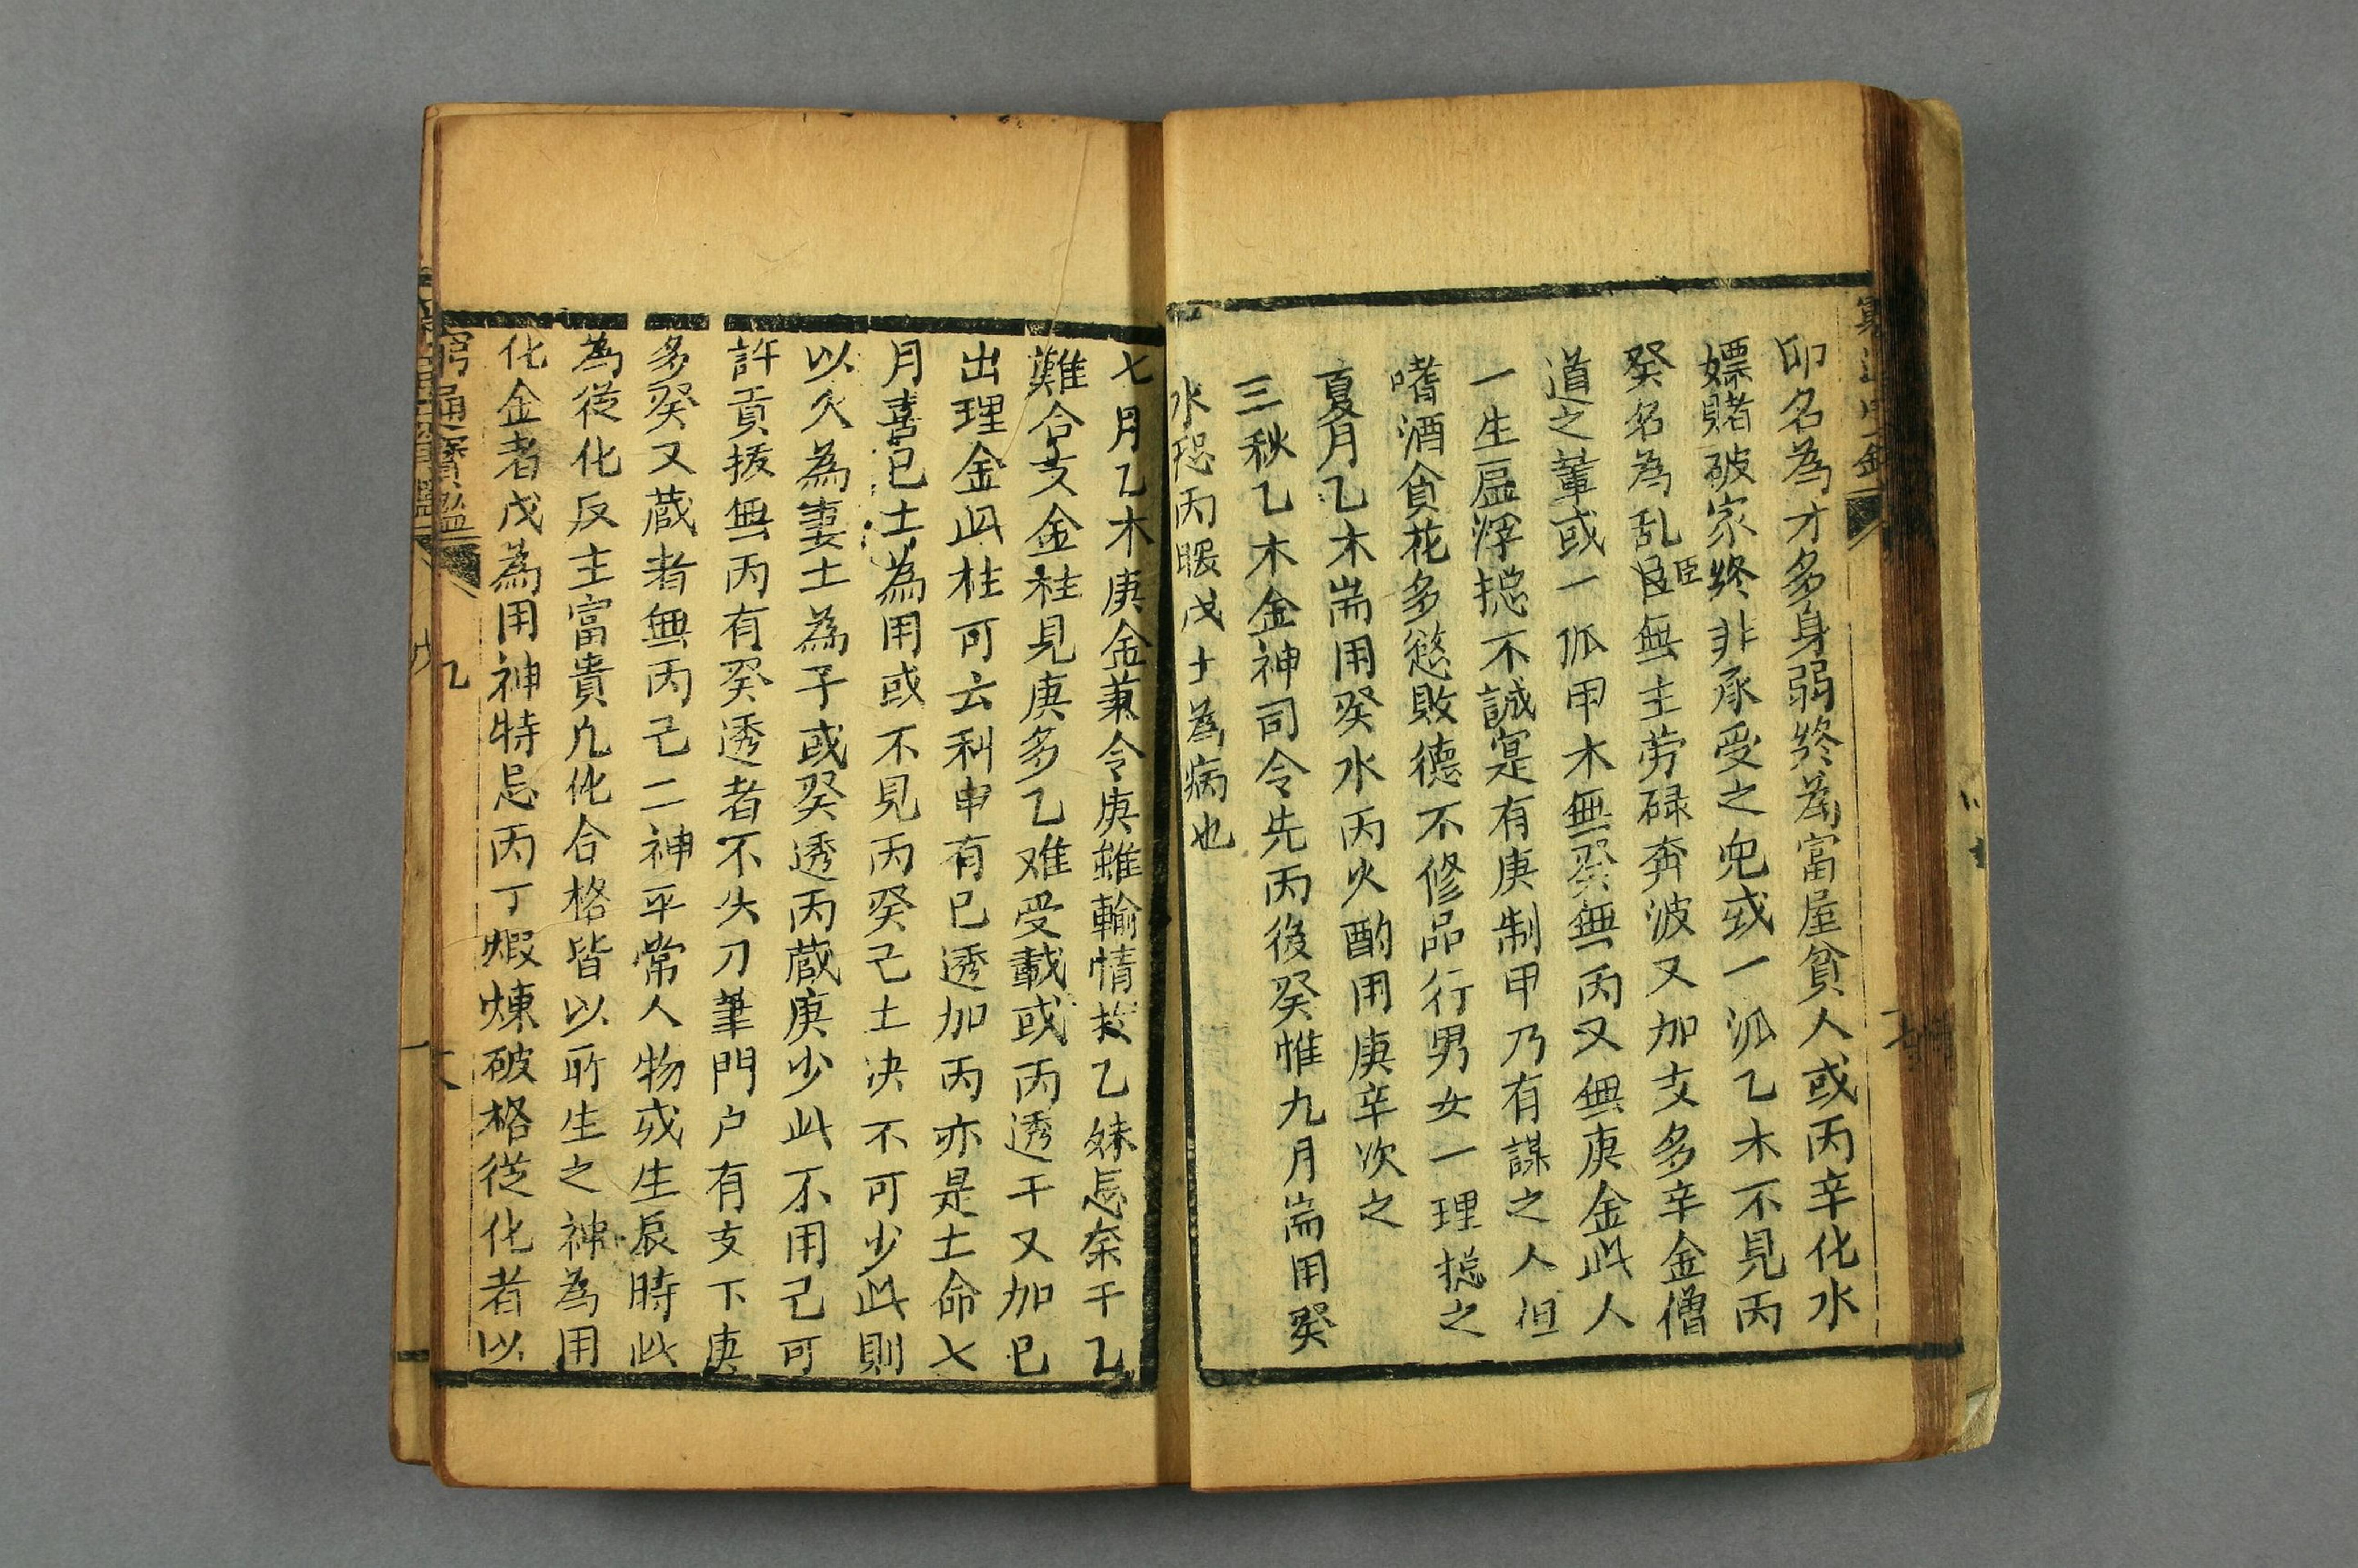 印名為才多身弱終為富屋貧人或丙辛化水
嫖賭破家終非承受之兒或一派乙木不見丙
癸名為乱臣無主劳碌奔波又加支多辛金僧
道之輩或一派甲木無癸無丙又無庚金此人
一生虛浮揔不誠寔有庚制甲乃有謀之人但
嗜酒貪花多慾敗德不修品行男女一理揔之
夏月乙木耑用癸水丙火酌用庚辛次之
三秋乙木金神司令先丙後癸惟九月耑用癸
水恐丙暖戊土為病也
七月乙木庚金兼令庚雖輸情扵乙妹㤀奈干乙
難合支金柱見庚多乙难受載或丙透干又加巳
出理金此柱可云利申有巳透加丙亦是土命七
月喜巳土為用或不見丙癸己土决不可少此則
以火為妻土為子或癸透丙蔵庚少此不用己可
許貢拔無丙有癸透者不失刀筆門户有支下庚
多癸又蔵者無丙己二神平常人物或生辰時此
為從化反主富貴凢化合格皆以所生之神為用
化金者戊為用神特忌丙丁煆煉破格從化者以
窮通寳鑑